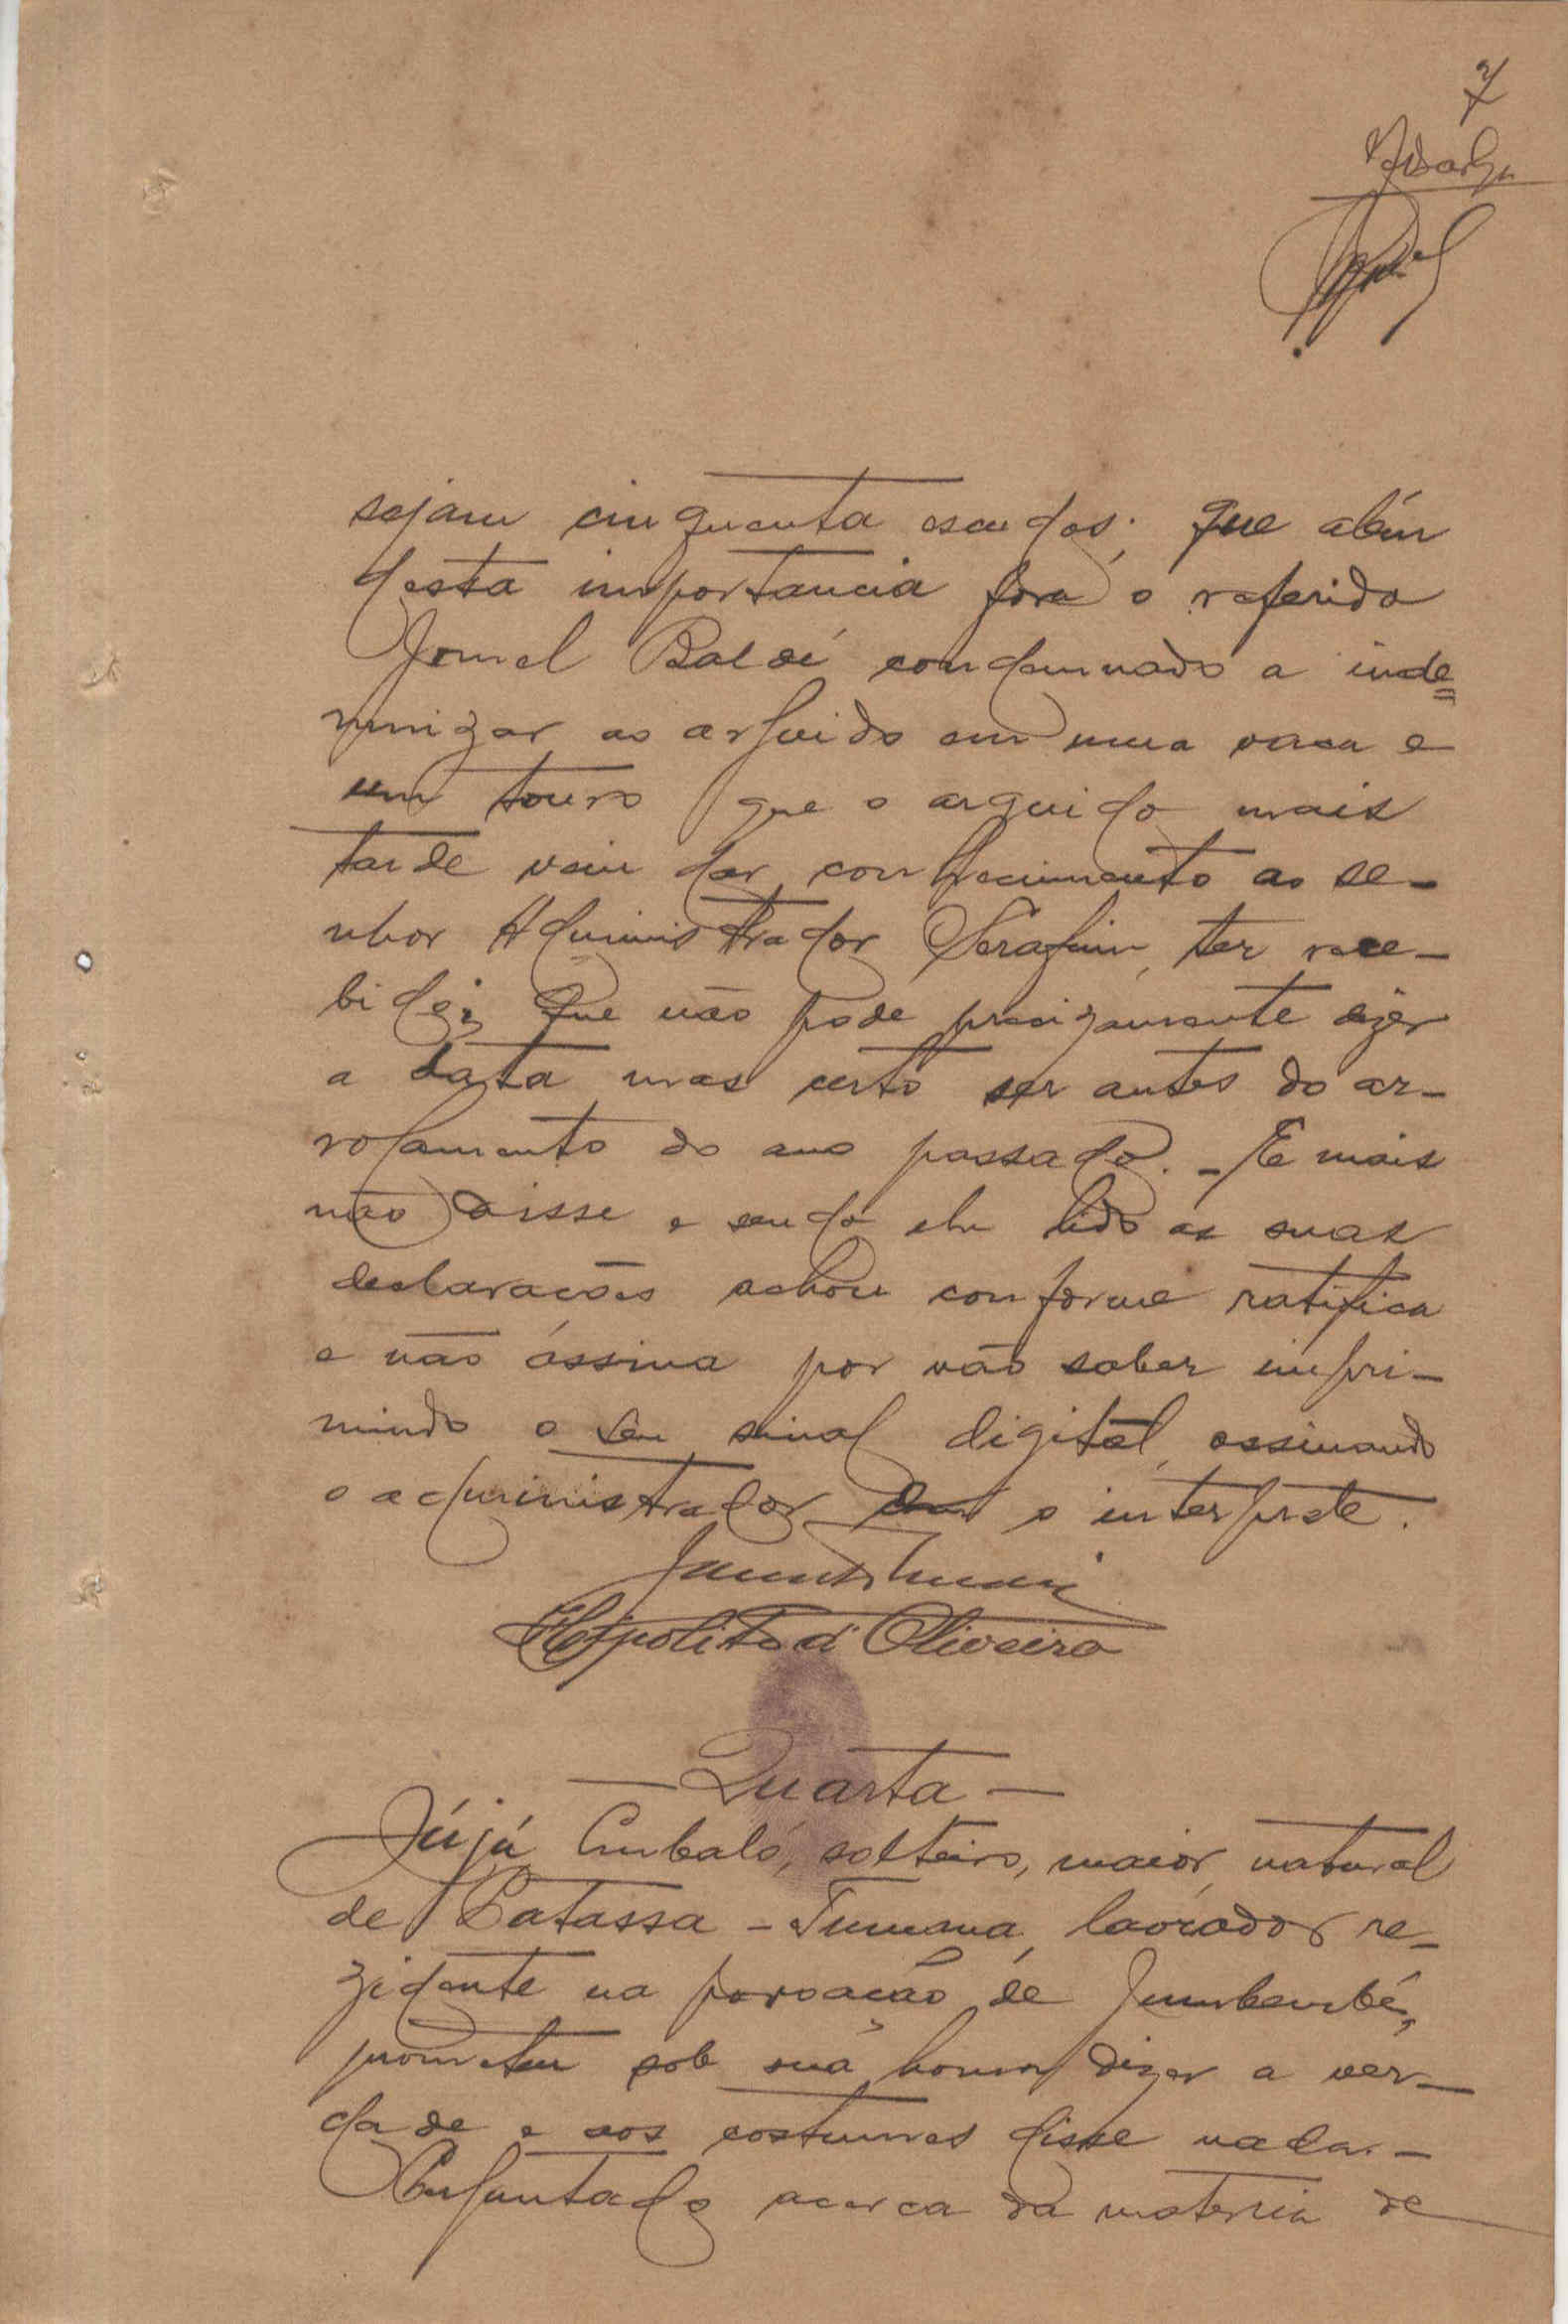 7
sejam cinquenta escudos; que além
desta importancia fora o referido
Jomel Baldé condemnado a inde=
mnizar ao arguido em uma vaca e
um touro que o arguido mais
tarde veiu dar conhecimento ao se-
nhor Administrador Serafim, ter rece-
bido; Que não pode precizamente dizer
a data mas certo ser antes do ar-
rolamento do ano passado. - E mais
não disse e sendo lhe lido as suas
declarações achou conforme ratifica
e não assina por não saber impri-
mindo o seu sinal digital, assinando
o administrador o interprete.
Hipolito d'Oliveira
- Quarta -
Jújú Embaló, solteiro, maior, natural
de Patassa - Tumana, lavrador re-
zidente na povoação de Jumbembé,
prometeu sob sua honra dizer a ver-
dade e aos costumes disse nada. -
Perguntado acerca da materia de